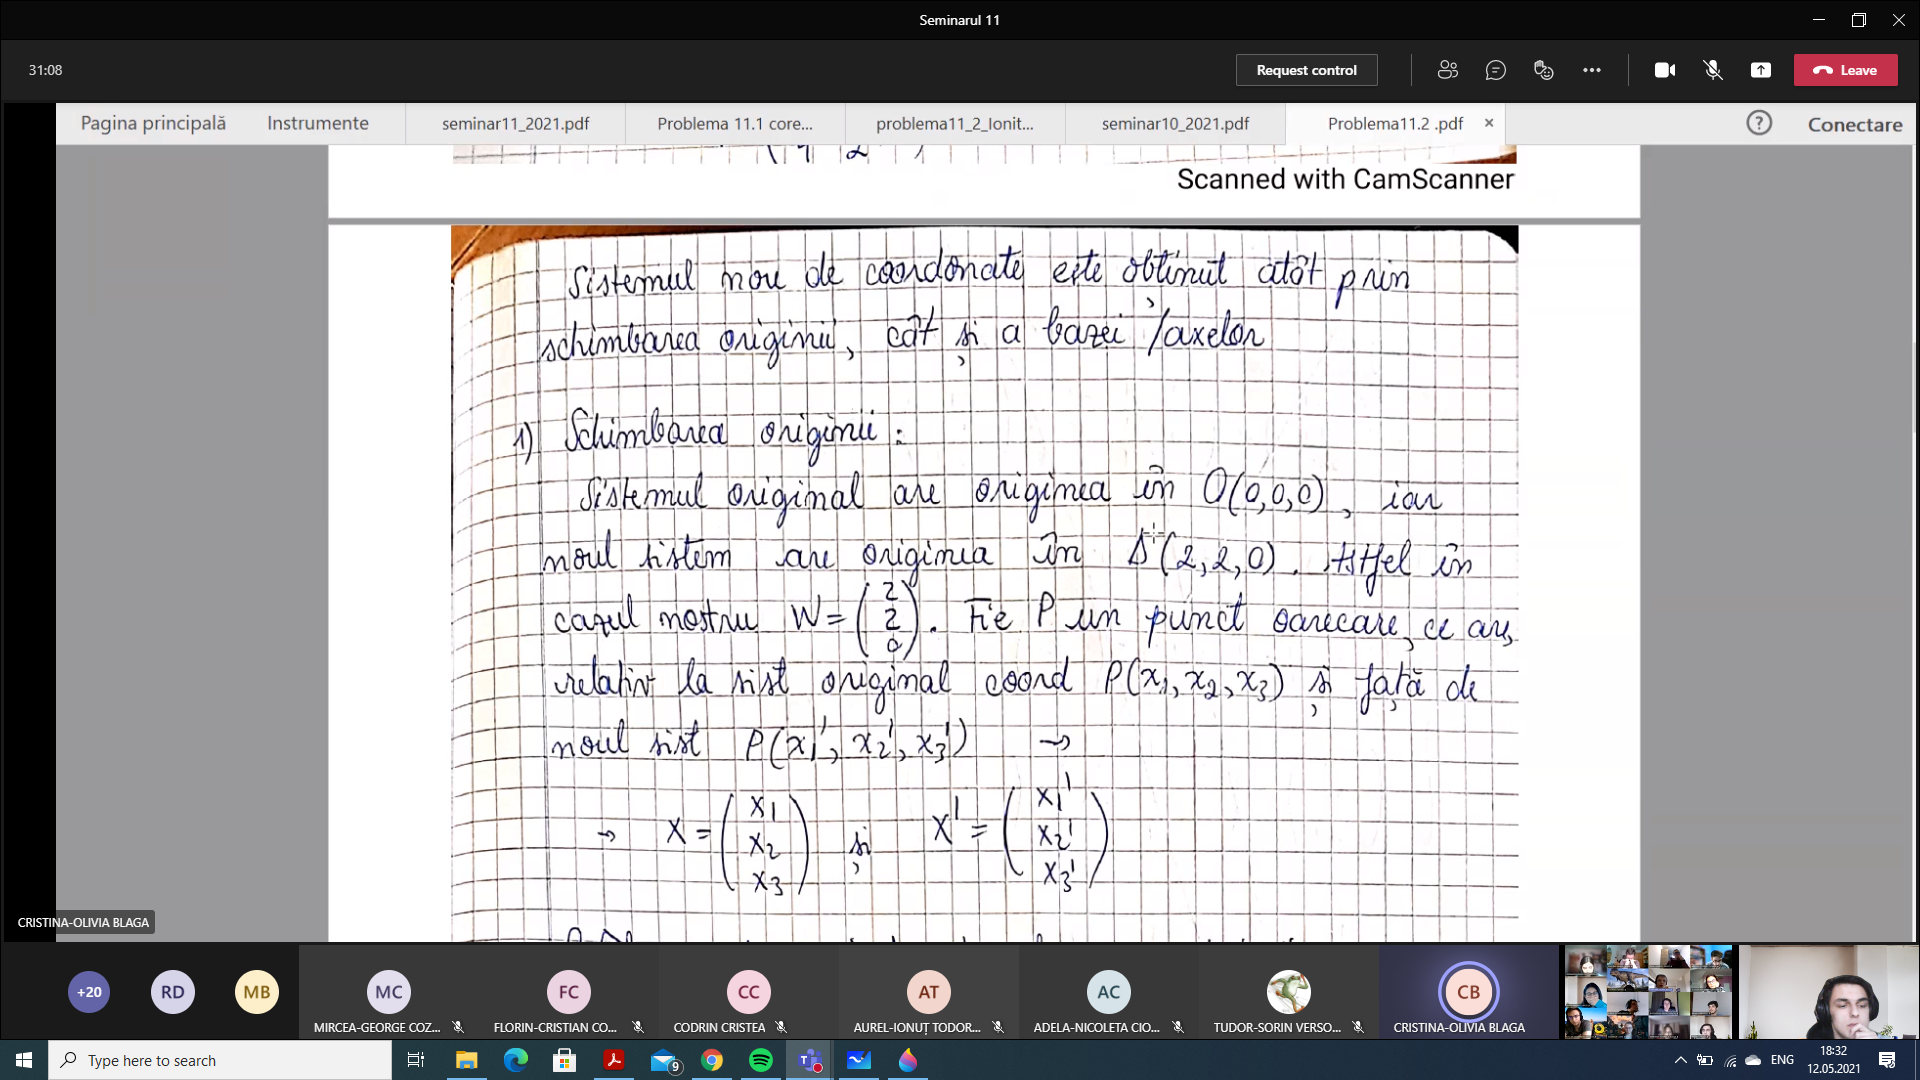 Seminarul 11
31:08
Request control
Leave
Pagina principală Instrumente seminar11_2021.pdf Problema 11.1 core... problema11_2_Ionit... seminar10_2021.pdf Problema11.2 .pdf Conectare
Scanned with CamScanner
Sistemul nou de coordonate este obținut atât prin
schimbarea originii, cât și a bazei /axelor
1) Schimbarea originii :
Sistemul original are originea în O(0,0,0), iar
noul sistem are originea în (2,2,0). Astfel în
cazul nostru W = (2 2 0). Fie P un punct oarecare, ce are,
relativ la sist original coord P(x1, x2, x3) și față de
noul sist P(x1', x2', x3') →
→ X = (x1 x2 x3) și X' = (x1' x2' x3')
CRISTINA-OLIVIA BLAGA
+20 RD MB MC FC CC AT AC CB
MIRCEA-GEORGE COZ... FLORIN-CRISTIAN CO... CODRIN CRISTEA AUREL-IONUȚ TODOR... ADELA-NICOLETA CIO... TUDOR-SORIN VERSO... CRISTINA-OLIVIA BLAGA
Type here to search
9
ENG
18:32
12.05.2021